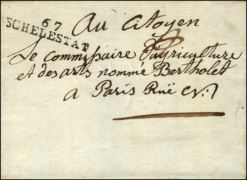 67
SCHELESTAT
Au Citoyen
Le Commissaire D'agriculture
et des arts nommé Bertholet
a Paris Rüe